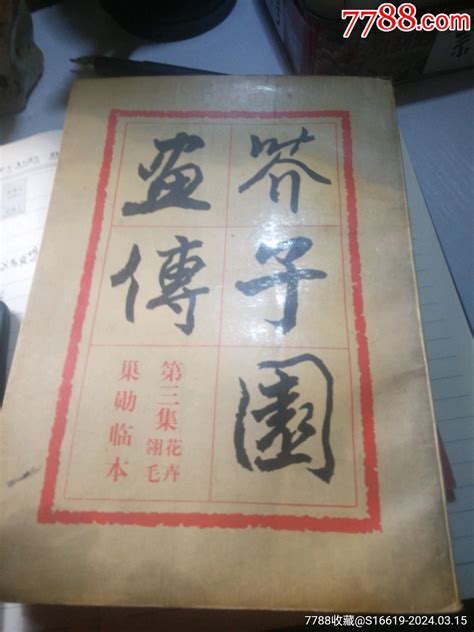 7788.com
芥子園
畫傳
第三集 花卉 翎毛
巢勋临本
7788收藏@S16619-2024.03.15